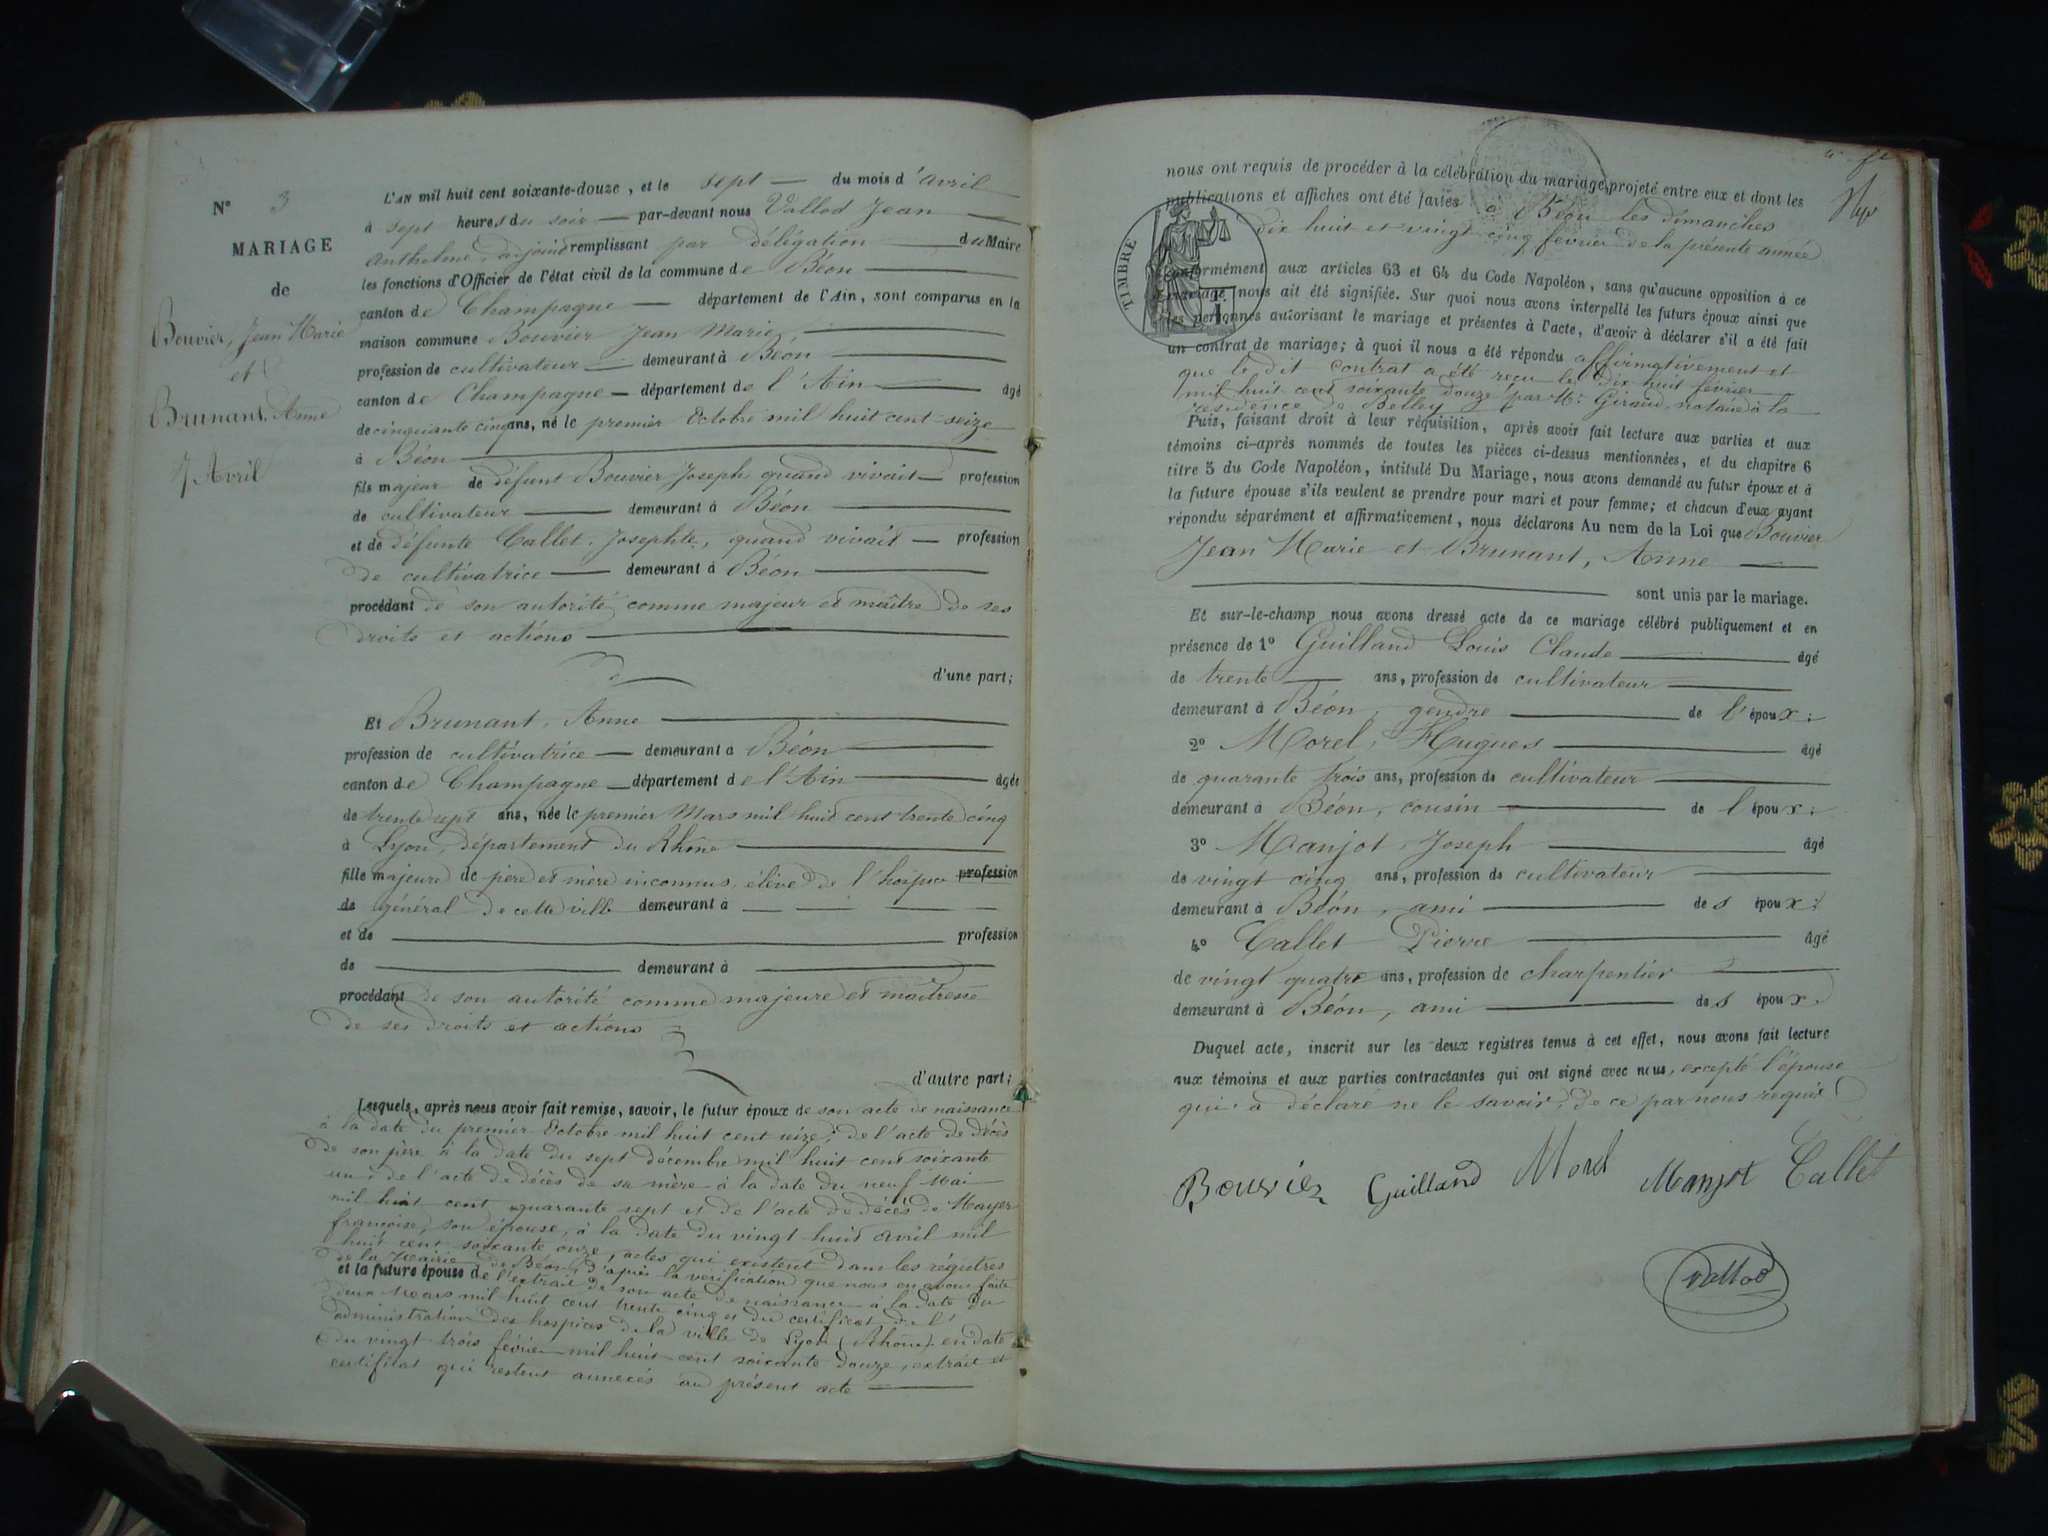 N° 3
MARIAGE
de
Bouvier, Jean Marie
et
Brunant, Anne
7 Avril
L'AN mil huit cent soixante-douze, et le sept du mois d'avril
à sept heures du soir par-devant nous Vallod Jean
Anthelme, adjoint remplissant par délégation du Maire
les fonctions d'Officier de l'état civil de la commune de Béon
canton de Champagne département de l'Ain, sont comparus en la
maison commune Bouvier Jean Marie,
profession de cultivateur demeurant à Béon
canton de Champagne département de l'Ain âgé
de cinquante cinq ans, né le premier Octobre mil huit cent seize
à Béon
fils majeur de défunt Bouvier Joseph quand vivait profession
de cultivateur demeurant à Béon
et de défunte Callet, Josephte, quand vivait profession
de cultivatrice demeurant à Béon
procédant de son autorité comme majeur et maître de ses
droits et actions
d'une part;
Et Brunant, Anne
profession de cultivatrice demeurant à Béon
canton de Champagne département de l'Ain âgée
de trente sept ans, née le premier Mars mil huit cent trente cinq
à Lyon, département du Rhône
fille majeure de père et mère inconnus, élève de l'hospice profession
de général de cette ville demeurant à
et de profession
de demeurant à
procédant de son autorité comme majeure et maîtresse
de ses droits et actions
d'autre part;
Lesquels, après nous avoir fait remise, savoir, le futur époux de son acte de naissance
à la date du premier Octobre mil huit cent seize; de l'acte de décès
de son père à la date du sept décembre mil huit cent soixante
un; de l'acte de décès de sa mère à la date du neuf Mai
mil huit cent quarante sept et de l'acte de décès de Mayer
françoise, son épouse, à la date du vingt huit avril mil
huit cent soixante onze, actes qui existent dans les régistres
de la Mairie de Béon, d'après la vérification que nous en avons faite
et la future épouse de l'extrait de son acte de naissance à la date du
deux Mars mil huit cent trente cinq et du certificat de l'
administration des hospices de la ville de Lyon (Rhône) en date
du vingt trois février mil huit cent soixante douze, extrait et
certificat qui restent annexés au présent acte
nous ont requis de procéder à la célébration du mariage projeté entre eux et dont les
publications et affiches ont été faites à Béon les dimanches
dix huit et vingt cinq février de la présente année
TIMBRE
conformément aux articles 63 et 64 du Code Napoléon, sans qu'aucune opposition à ce
mariage nous ait été signifiée. Sur quoi nous avons interpellé les futurs époux ainsi que
les personnes autorisant le mariage et présentes à l'acte, d'avoir à déclarer s'il a été fait
un contrat de mariage; à quoi il nous a été répondu affirmativement et
que le dit contrat a été reçu le dix huit février
mil huit cent soixante douze par Mr Giraud, notaire à la
résidence de Belley
Puis, faisant droit à leur réquisition, après avoir fait lecture aux parties et aux
témoins ci-après nommés de toutes les pièces ci-dessus mentionnées, et du chapitre 6
titre 5 du Code Napoléon, intitulé Du Mariage, nous avons demandé au futur époux et à
la future épouse s'ils veulent se prendre pour mari et pour femme; et chacun d'eux ayant
répondu séparément et affirmativement, nous déclarons Au nom de la Loi que Bouvier
Jean Marie et Brunant, Anne
sont unis par le mariage.
Et sur-le-champ nous avons dressé acte de ce mariage célébré publiquement et en
présence de 1° Guilland Louis Claude âgé
de trente ans, profession de cultivateur
demeurant à Béon, gendre de l'époux;
2° Morel, Hugues âgé
de quarante trois ans, profession de cultivateur
demeurant à Béon, cousin de l'époux;
3° Manjot, Joseph âgé
de vingt cinq ans, profession de cultivateur
demeurant à Béon, ami des époux;
4° Callet Pierre âgé
de vingt quatre ans, profession de charpentier
demeurant à Béon, ami des époux.
Duquel acte, inscrit sur les deux registres tenus à cet effet, nous avons fait lecture
aux témoins et aux parties contractantes qui ont signé avec nous, excepté l'épouse
qui a déclaré ne le savoir, de ce par nous requis
Bouvier Guilland Morel Manjot Callet
Vallod